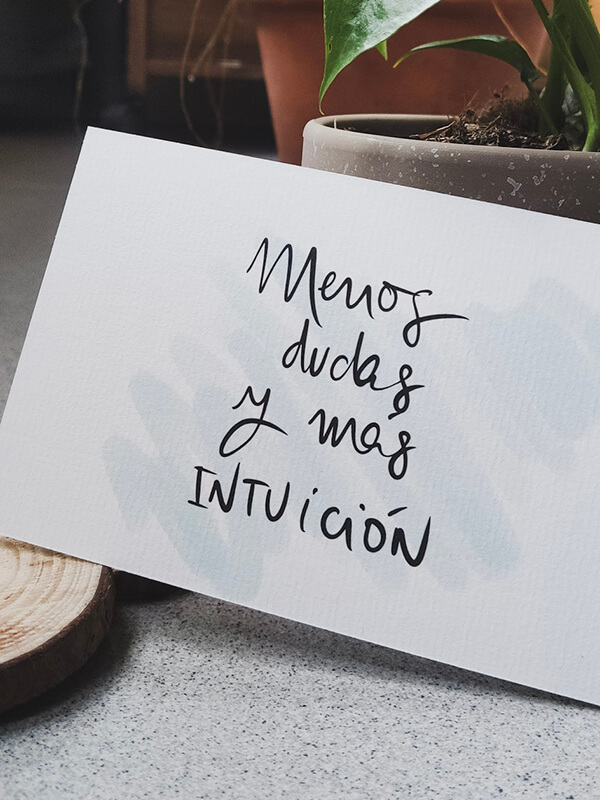 Menos
dudas
y más
INTUiCiÓN